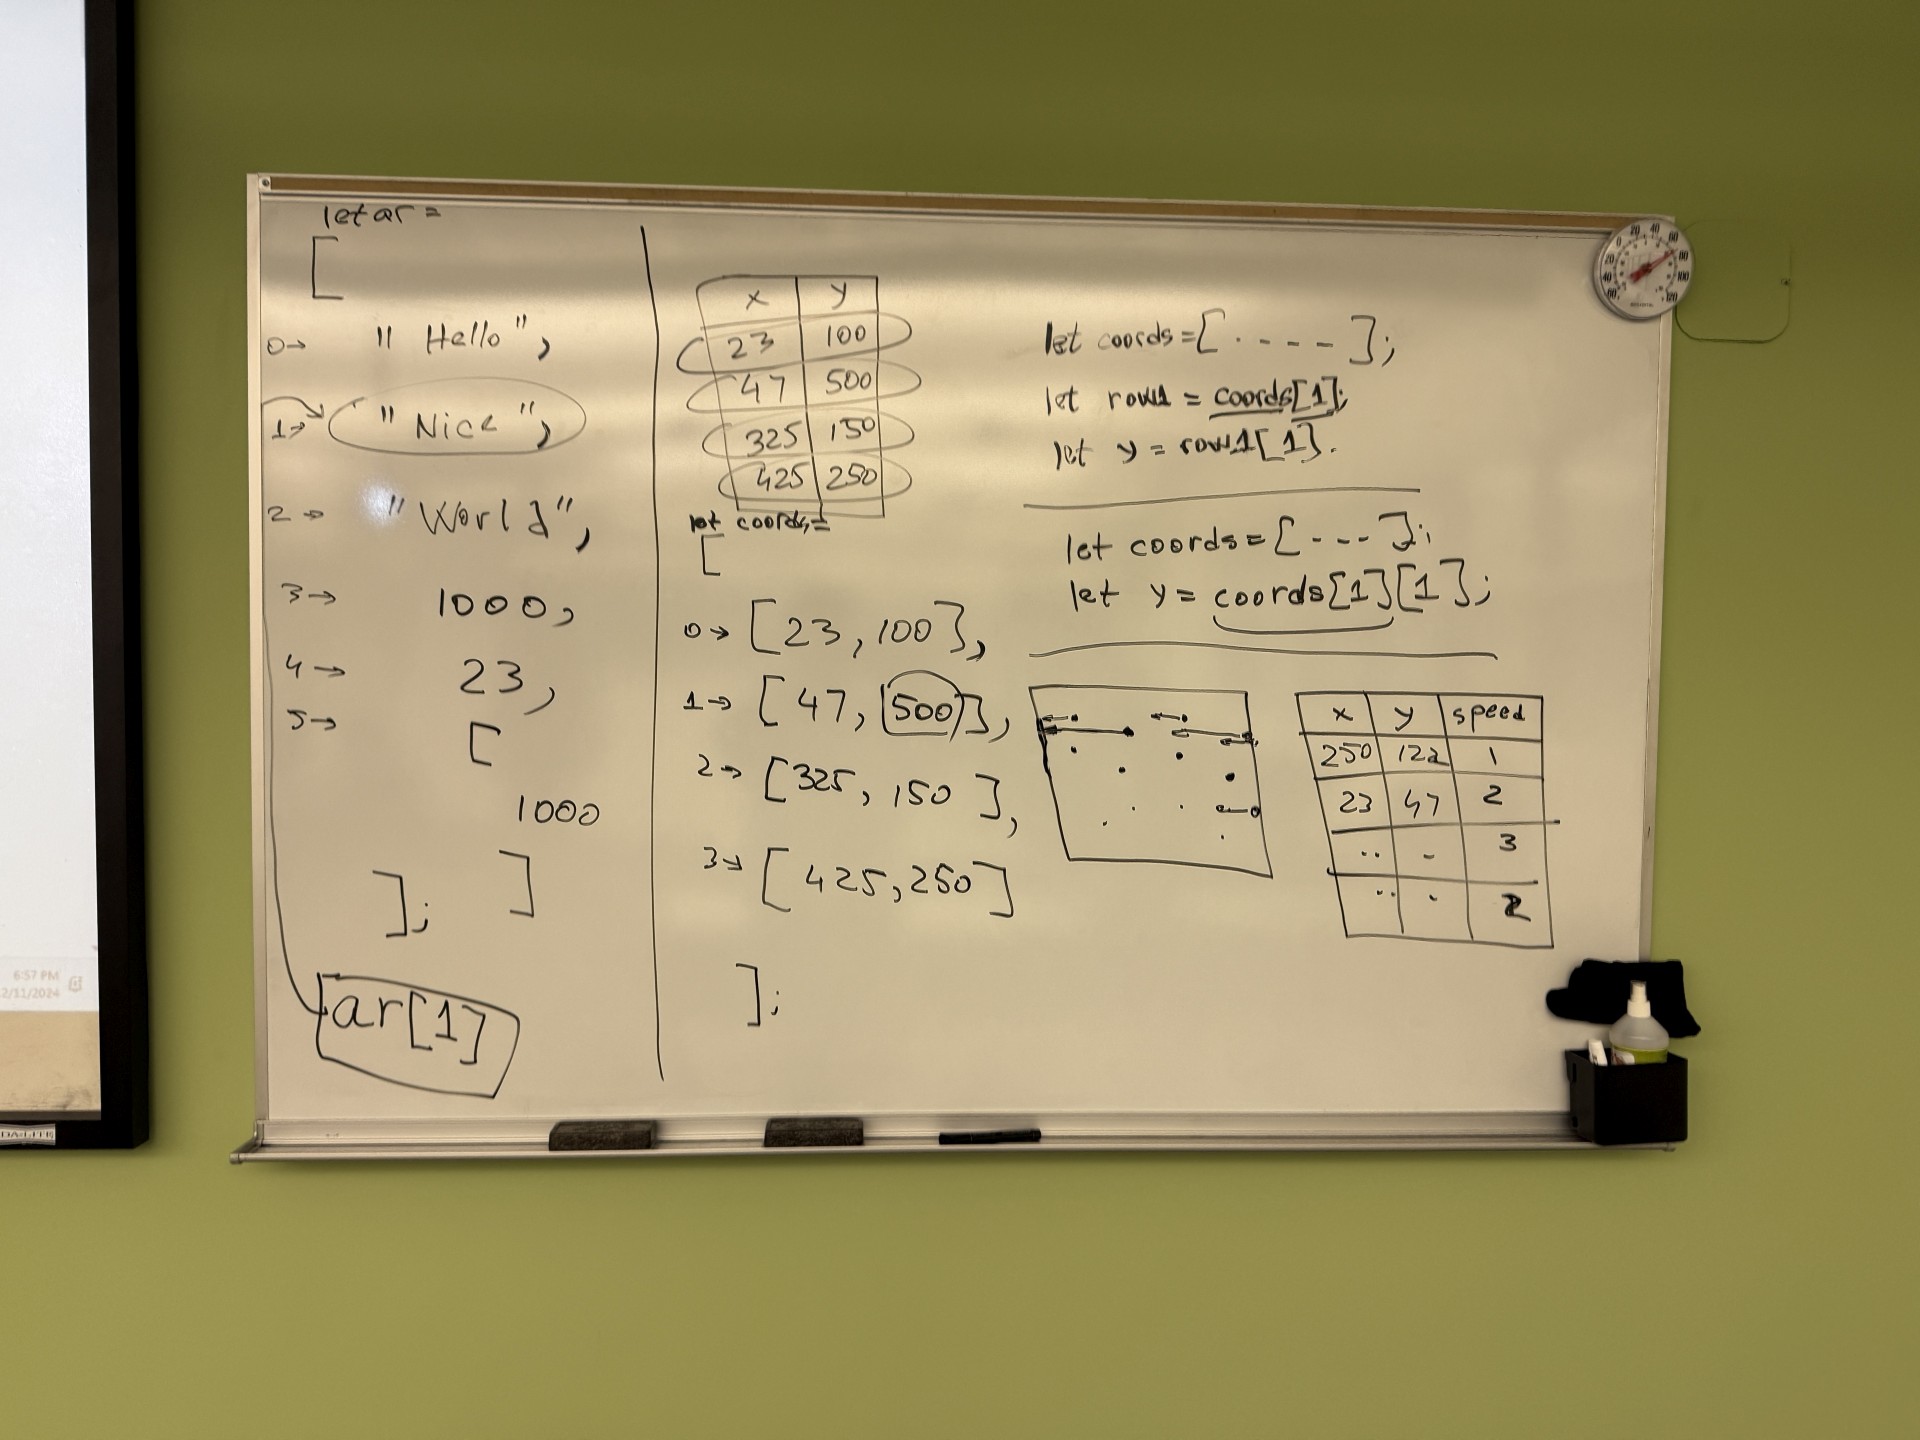 let ar =
[
0→ "Hello",
1→ "Nick",
2→ "World",
3→ 1000,
4→ 23,
5→ [
1000
]
];
ar[1]
x y
23 100
47 500
325 150
425 250
let coords=
[
0→ [23,100],
1→ [47,500],
2→ [325,150],
3→ [425,250]
];
let coords=[.----];
let row1 = coords[1];
let y = row1[1].
let coords=[---];
let y= coords[1][1];
x y speed
250 122 1
23 47 2
.. - 3
.. . 2
6:57 PM
2/11/2024
DA-LITE
0 20 40 60 80 100 120
20 40 60